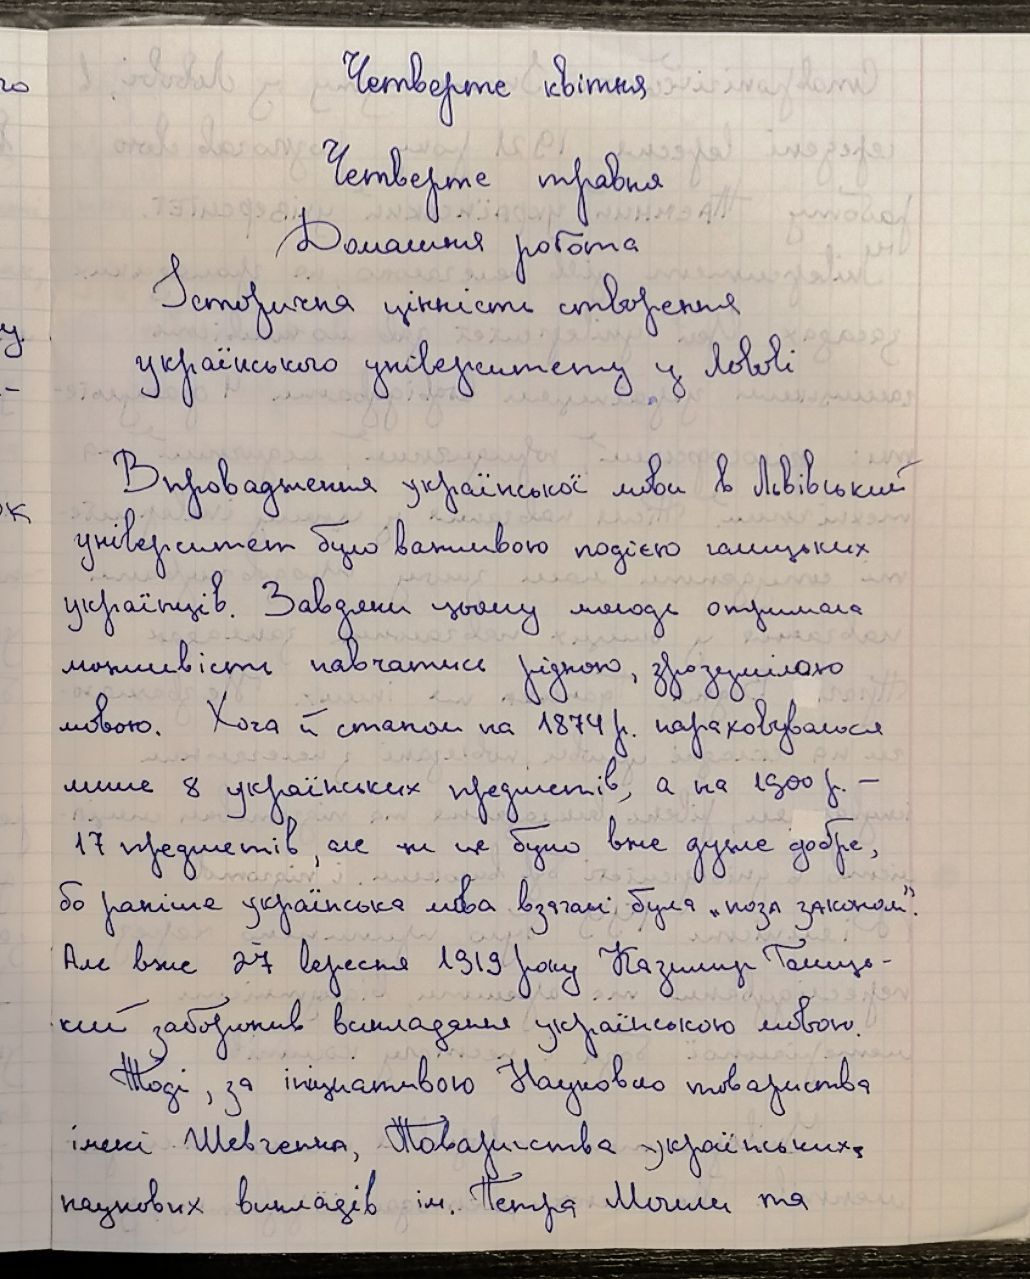 Четверте квітня
Четверте травня
Домашня робота
Історична цінність створення
українського університету у Львові
Впровадження української мови в Львівський
університет було важливою подією галицьких
українців. Завдяки цьому молодь отримала
можливість навчатись рідною, зрозумілою
мовою. Хоча й станом на 1874 р. нараховувалося
лише 8 українських предметів, а на 1900 р. –
17 предметів, але ж це було вже дуже добре,
бо раніше українська мова взагалі була „поза законом”.
Але вже 27 вересня 1919 року Казимир Галиць-
кий заборонив викладання українською мовою.
Тоді, за ініціативою Наукового товариства
імені Шевченка, Товариства українських
наукових викладів ім. Петра Могили та